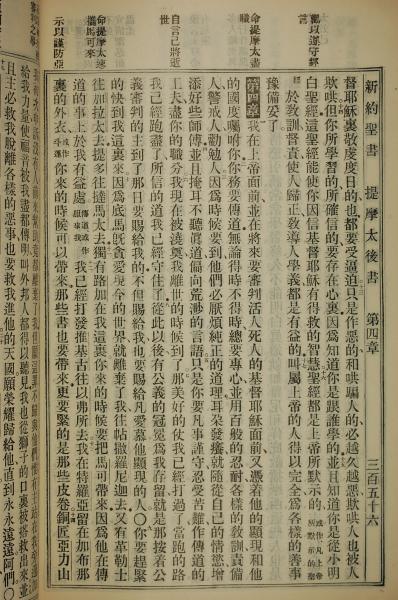 新約聖書 提摩太後書 第四章 三百五十六
督耶穌裏敬虔度日的也都要受逼迫只是作惡的和哄騙人的必越久越惡欺哄人也被人
欺哄但你所學習的所確信的要存在心裏因爲知道你是跟誰學的並且知道你是從小明
白聖經這聖經能使你因信基督耶穌有得救的智慧聖經都是上帝所默示的
於教訓督責使人歸正教導人學義都是有益的叫屬上帝的人得以完全爲各樣的善事
豫備妥了
第四章 我在上帝面前並在將來要審判活人死人的基督耶穌面前又憑着他的顯現和他
的國度囑咐你你務要傳道無論得時不得時總要專心並用百般的忍耐各樣的教訓責備
人警戒人勸勉人因爲時候要到他們必厭煩純正的道理耳朶發癢就隨從自己的情慾增
添好些師傅並且掩耳不聽眞道偏向荒渺的言語只是你要凡事謹守忍受苦難作傳道的
工夫盡你的職分我現在被澆奠我離世的時候到了那美好的仗我已經打過了當跑的路
我已經跑盡了所信的道我已經守住了從此以後有公義的冠冕爲我存留就是那按着公
義審判的主到了那日要賜給我的不但賜給我也要賜給凡愛慕他顯現的人〇你要趕緊
的快到我這裏來因爲底馬旣貪愛現今的世界就離棄了我往帖撒羅尼迦去又有革勒士
往加拉太去提多往撻馬太去獨有路加在我這裏你來的時候要把馬可帶來因爲他在傳
道的事上於我有益處 傳道或作服事我 我已經打發推基古往以弗所去我在特羅亞留在加布那
裏的外衣 你來的時候可以帶來那些書也要帶來更要緊的是那些皮卷銅匠亞力山
給我力量使福音被我盡都傳明叫外邦人都得以聽見我也從獅子的口裏被搭救出來並
且主必救我脫離各樣的惡事也要救我進他的天國願榮耀歸給他直到永永遠遠阿們〇
勸以遵守經
命提摩太盡
職
自言己將逝
世
命提摩太速
攜馬可來
示以謹防亞